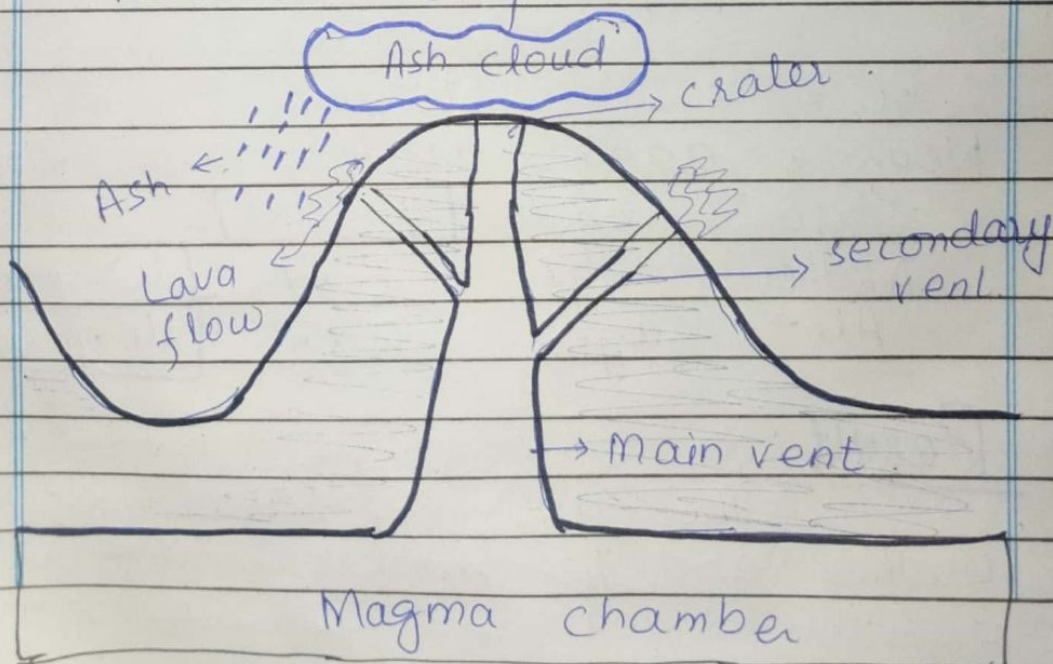 Ash cloud
crater
Ash
Lava
flow
secondary
vent
Main vent
Magma chamber